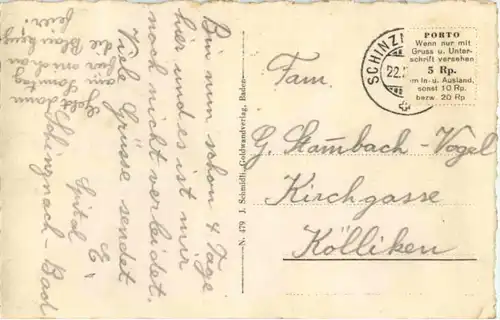 Bin nun schon 4 Tage
hier und es ist mir
noch nicht verleidet.
Viele Grüsse sendet
E.
Spital
Schinznach-Bad
Geht dann
am Sonntag
die
feier.
N. 479 J. Schmidli, Goldwandverlag, Baden
SCHINZ
22.
PORTO
Wenn nur mit
Gruss u. Unter-
schrift versehen
5 Rp.
im In- u. Ausland,
sonst 10 Rp.
bezw. 20 Rp
Fam.
G. Stambach-Vogel
Kirchgasse
Kölliken